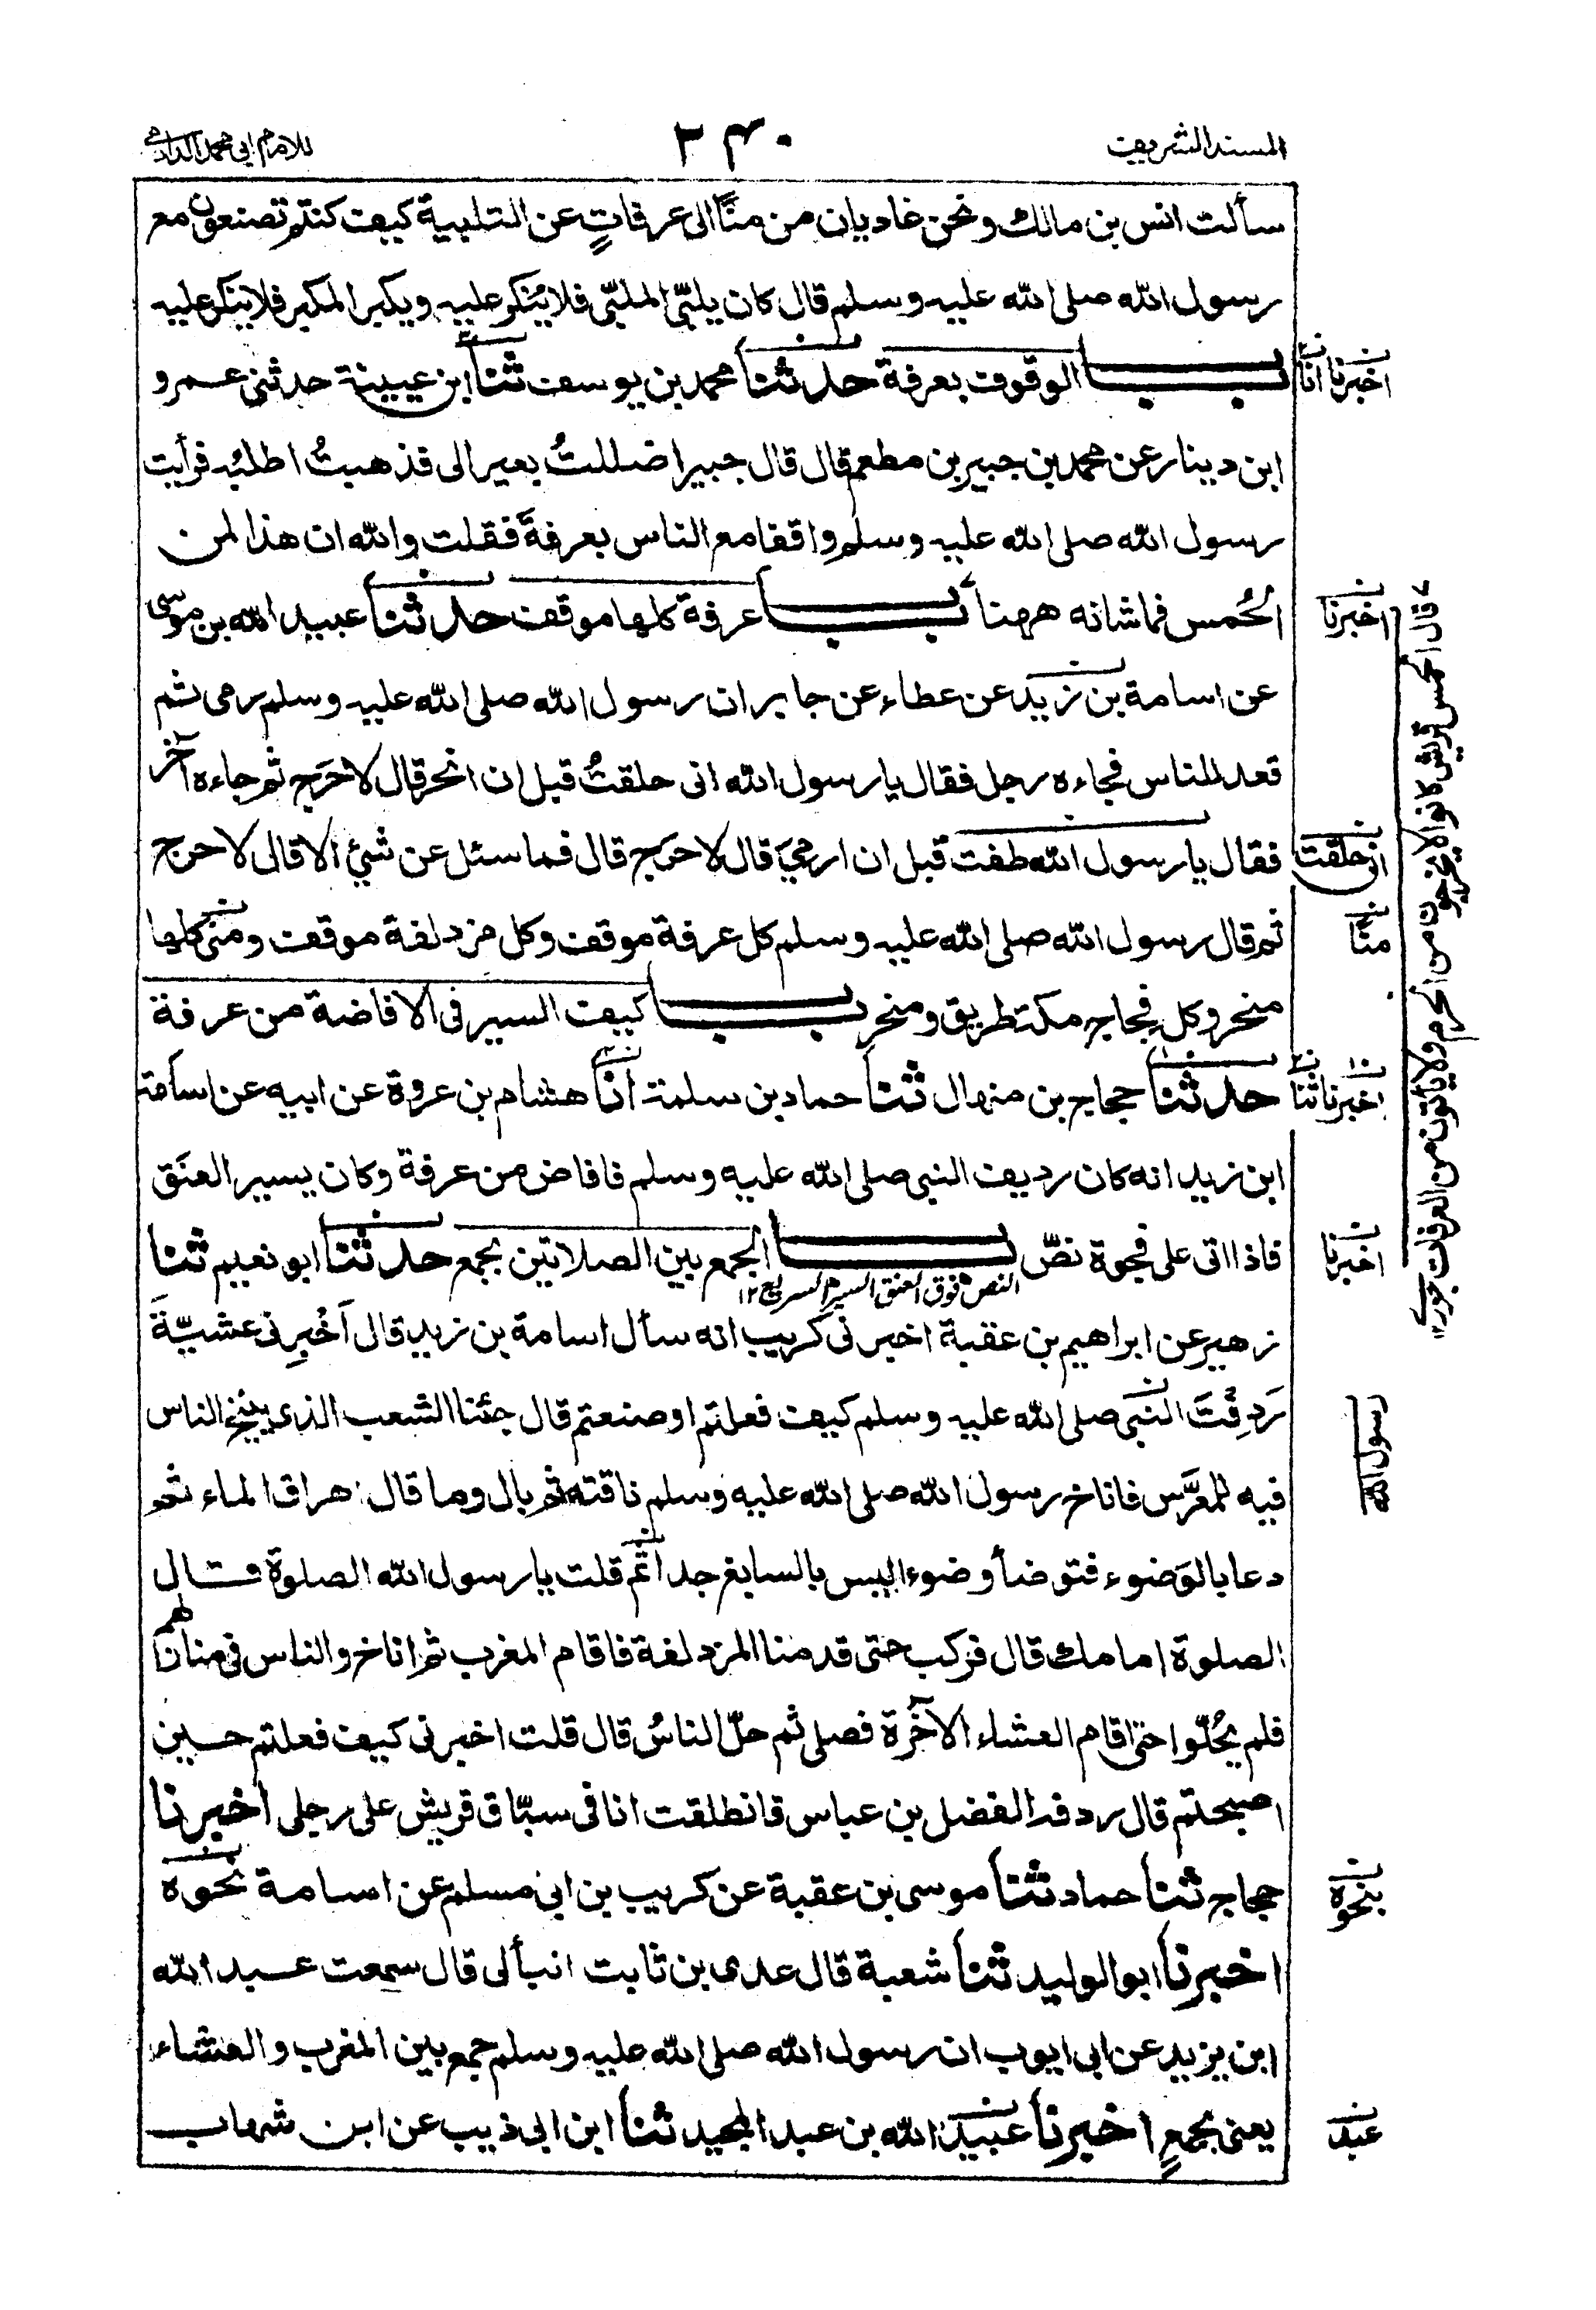 المسند الشريف
٢٤٠
للامام ابي محمد الدارمي
سألت انس بن مالك ونحن غاديان من منًّا الى عرفاتٍ عن التلبية كيف كنتم تصنعون مع
رسول الله صلى الله عليه وسلم قال كان يلبّي الملبّي فلا يُنكر عليه ويكبر المكبر فلا ينكر عليه
بــــاب الوقوف بعرفة حدثنا محمد بن يوسف ثنا ابن عيينة حدثني عمرو
ابن دينار عن محمد بن جبير بن مطعم قال قال جبير اضللتُ بعيرا لى فذهبتُ اطلبُه فرأيت
رسول الله صلى الله عليه وسلم واقفا مع الناس بعرفةَ فقلت والله ان هذا لمن
الحُمس فما شانه ههنا بــــاب عرفة كلها موقف حدثنا عبيد الله بن موسى
عن اسامة بن زيد عن عطاء عن جابر ان رسول الله صلى الله عليه وسلم رمى ثم
قعد للناس فجاءه رجل فقال يا رسول الله انى حلقتُ قبل ان انحر قال لا حَرَج ثم جاءه آخر
فقال يا رسول الله طفت قبل ان ارميَ قال لا حَرَج قال فما سئل عن شيْ الا قال لا حرج
ثم قال رسول الله صلى الله عليه وسلم كل عرفة موقف وكل مزدلفة موقف ومنى كلها
منحر وكل فِجاج مكة طريق ومنحر بــــاب كيف السير فى الافاضة من عرفة
حدثنا حجاج بن منهال ثنا حماد بن سلمة انا هشام بن عروة عن ابيه عن اسامة
ابن زيد انه كان رديف النبى صلى الله عليه وسلم فافاض من عرفة وكان يسير العنَق
فاذا اتى على فجوة نصّ بــــاب الجمع بين الصلاتين بجمع حدثنا ابو نعيم ثنا
النص فوق العنق السير السريع ١٢
زهير عن ابراهيم بن عقبة اخبرنى كريب انه سأل اسامة بن زيد قال اَخْبِرنى عشيّةَ
رَدِفْتَ النبى صلى الله عليه وسلم كيف فعلتم او صنعتم قال جئنا الشعب الذى يُنيخ الناس
فيه للمعَرَّس فاناخ رسول الله صلى الله عليه وسلم ناقته ثم بال وما قال هراق الماء ثم
دعا بالوَضوء فتوضأ وضوءا ليس بالسابغ جدا ثم قلت يا رسول الله الصلوة قال
الصلوة امامك قال فركب حتى قدمنا المزدلفة فاقام المغرب ثم اناخ والناس فى منازلهم
فلم يحُلّوا حتى اقام العشاء الآخرة فصلى ثم حلّ الناسُ قال قلت اخبرنى كيف فعلتم حين
اصبحتم قال ردفه الفضل بن عباس فانطلقت انا فى سبّاق قريش على رجلى اخبرنا
حجاج ثنا حماد ثنا موسى بن عقبة عن كريب بن ابى مسلم عن اسامة نحوه
اخبرنا ابو الوليد ثنا شعبة قال عدى بن ثابت انبأنى قال سمعت عبد الله
ابن يزيد عن ابى ايوب ان رسول الله صلى الله عليه وسلم جمع بين المغرب والعشاء
يعنى بجمعٍ اخبرنا عبيد الله بن عبد المجيد ثنا ابن ابى ذيب عن ابن شهاب
اخبرنا انا
اخبرنا
انى حلقت
منًّا
اخبرنا ثنا
اخبرنا
رسول الله
بنحوه
عبد
قال الحمس قريش كانوا لا يخرجون من الحرم ولا يأتون من العرفات